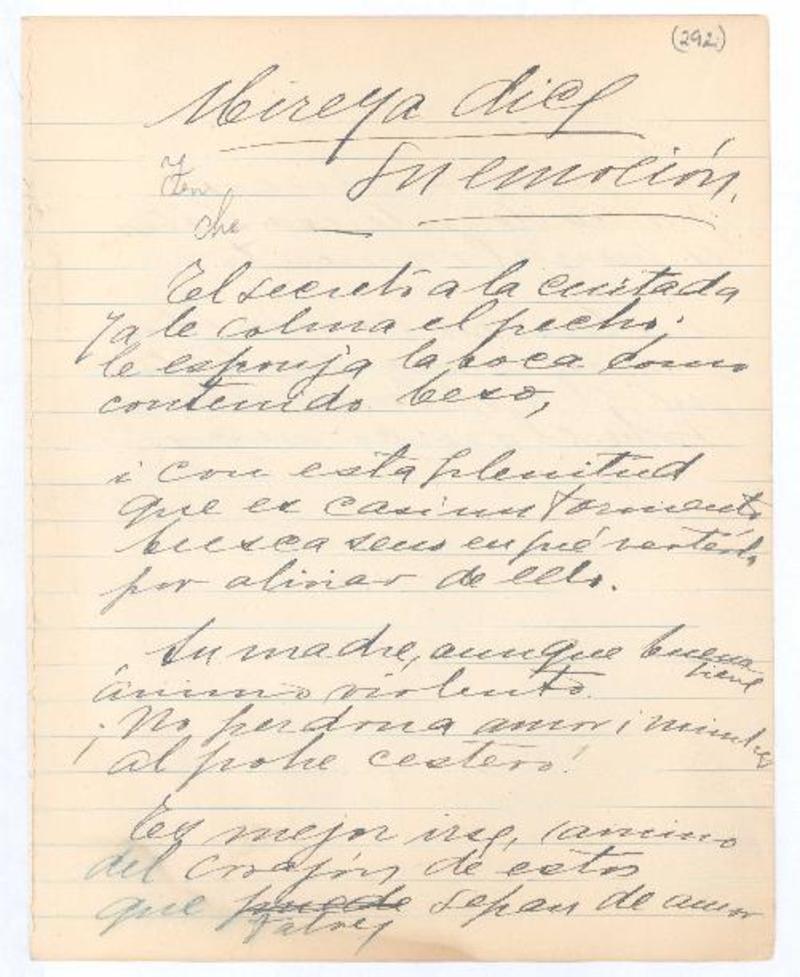 (292)
Mireya dice
su emoción.
che
El secreto a la cuitada
ya le colma el pecho;
le esponja la boca como
contenido beso,
i con esta plenitud
que es casi un tormento
busca seno en qué verterla
por aliviar de ello.
Su madre, aunque buena
tiene
ánimo violento.
¡No perdona amor i menos
al pobre cestero!
Es mejor irse, camino
del corazón, de estos
que puede sepan de amor
talvez